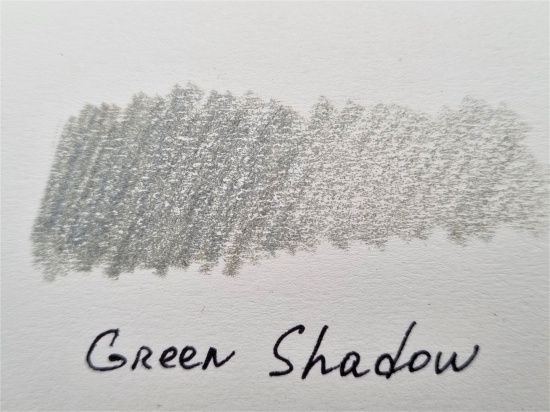 Green Shadow